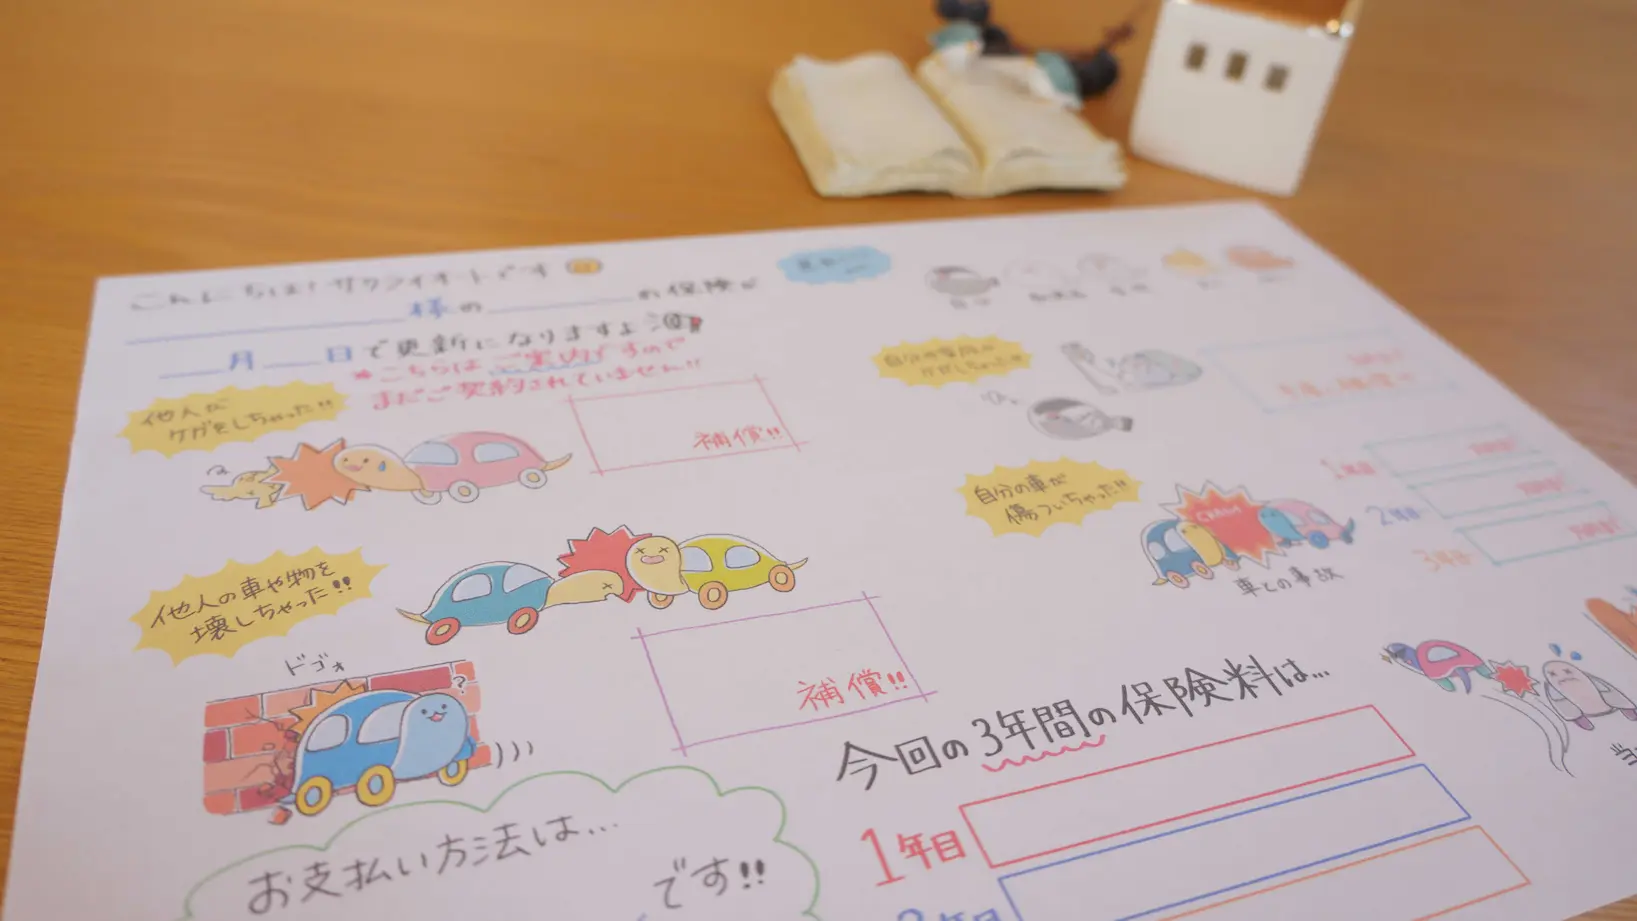 こんにちは！サクライオートです
様の お保険が
月 日で更新になりますよ
*こちらはご案内ですので
まだご契約されていません!!
他人が
ケガをしちゃった!!
補償!!
他人の車や物を
壊しちゃった!!
補償!!
ドゴォ
?
お支払い方法は…
です!!
自分や家族が
ケガしちゃった!!
自分の車が
傷ついちゃった!!
CRASH
車との事故
1年目
2年目
3年目
今回の3年間の保険料は…
1年目
2年目